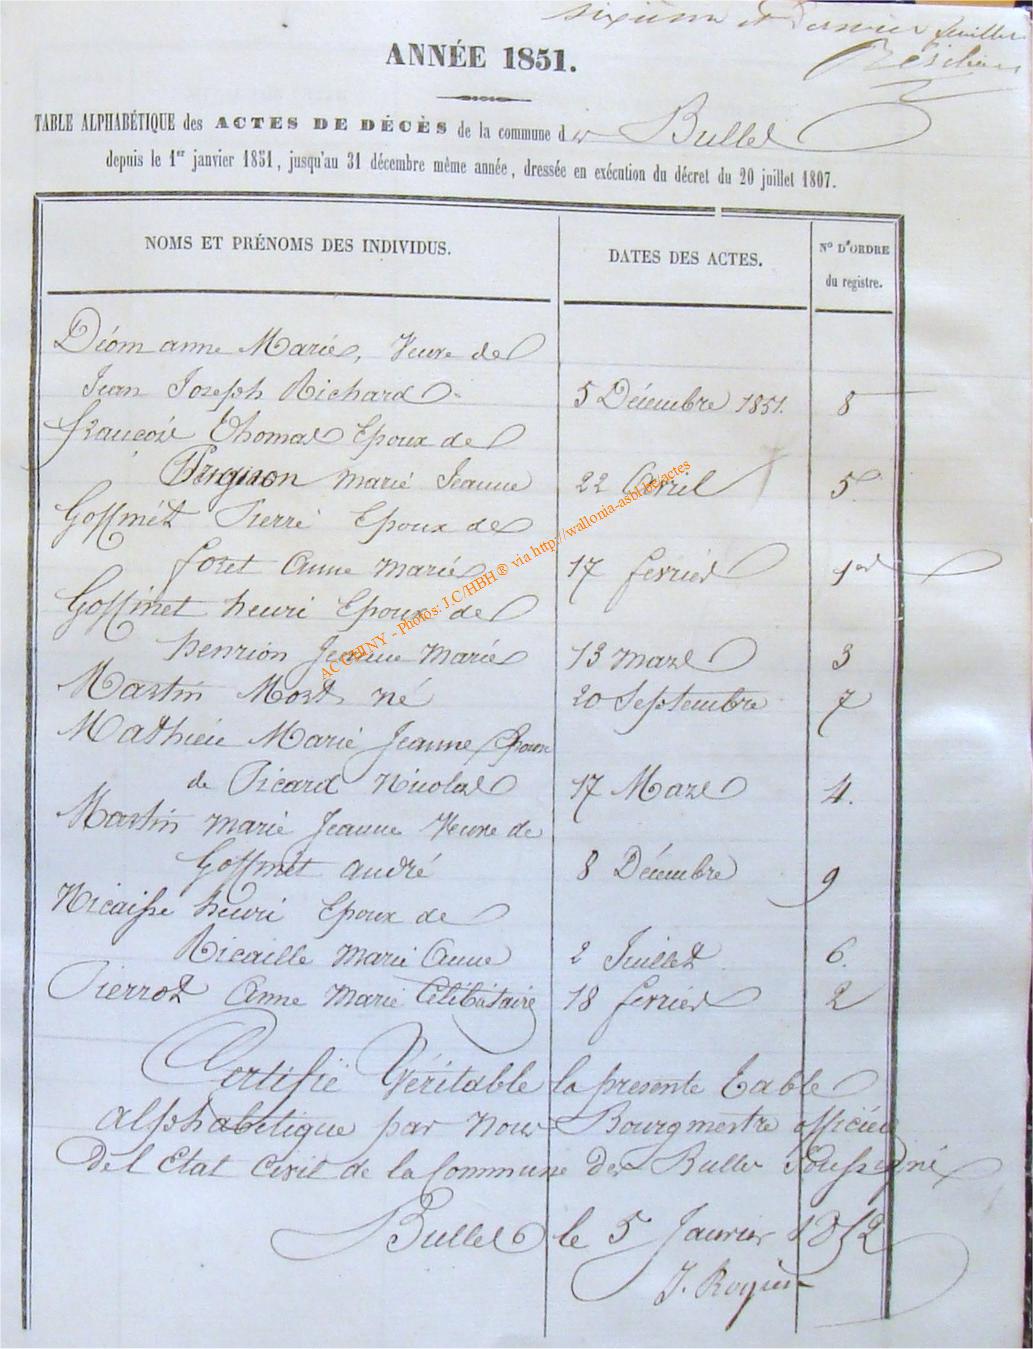 sixieme et Dernier feuillet
ANNÉE 1851.
TABLE ALPHABÉTIQUE des ACTES DE DÉCÈS de la commune d er Bulles
depuis le 1er janvier 1851, jusqu'au 31 décembre même année, dressée en exécution du décret du 20 juillet 1807.
NOMS ET PRÉNOMS DES INDIVIDUS. DATES DES ACTES. N° D'ORDRE du registre.
Déom anne Marie, Veuve de
Jean Joseph Richard 5 Décembre 1851. 8
françois Thomas Epoux de
Pirguon marie Jeanne 22 Avril 5
Goffinét Pierre Epoux de
foret Anne Marie 17 fevrier 1er
Goffinet henri Epoux de
henrion Jeanne Marie 13 mars 3
Martin Mort né 20 Septembre 7
Mathieu Marie Jeanne Epouse
de Picard Nicolas 17 Mars 4.
Martin marie Jeanne Veuve de
Goffinét andré 8 Décembre 9
Nicaisse henri Epoux de
Ricaille Marie Anne 2 Juillet 6.
Pierrot Anne Marie Célibataire 18 fevrier 2
Certifié Véritable la presente table
alphabetique par Nous Bourgmestre officier
del Etat Civil de la Commune der Bulles Soussigné
Bulles le 5 Janvier 1852
AC CHINY - Photos: J.C/HBH ® via http://wallonia-asbl.be/actes